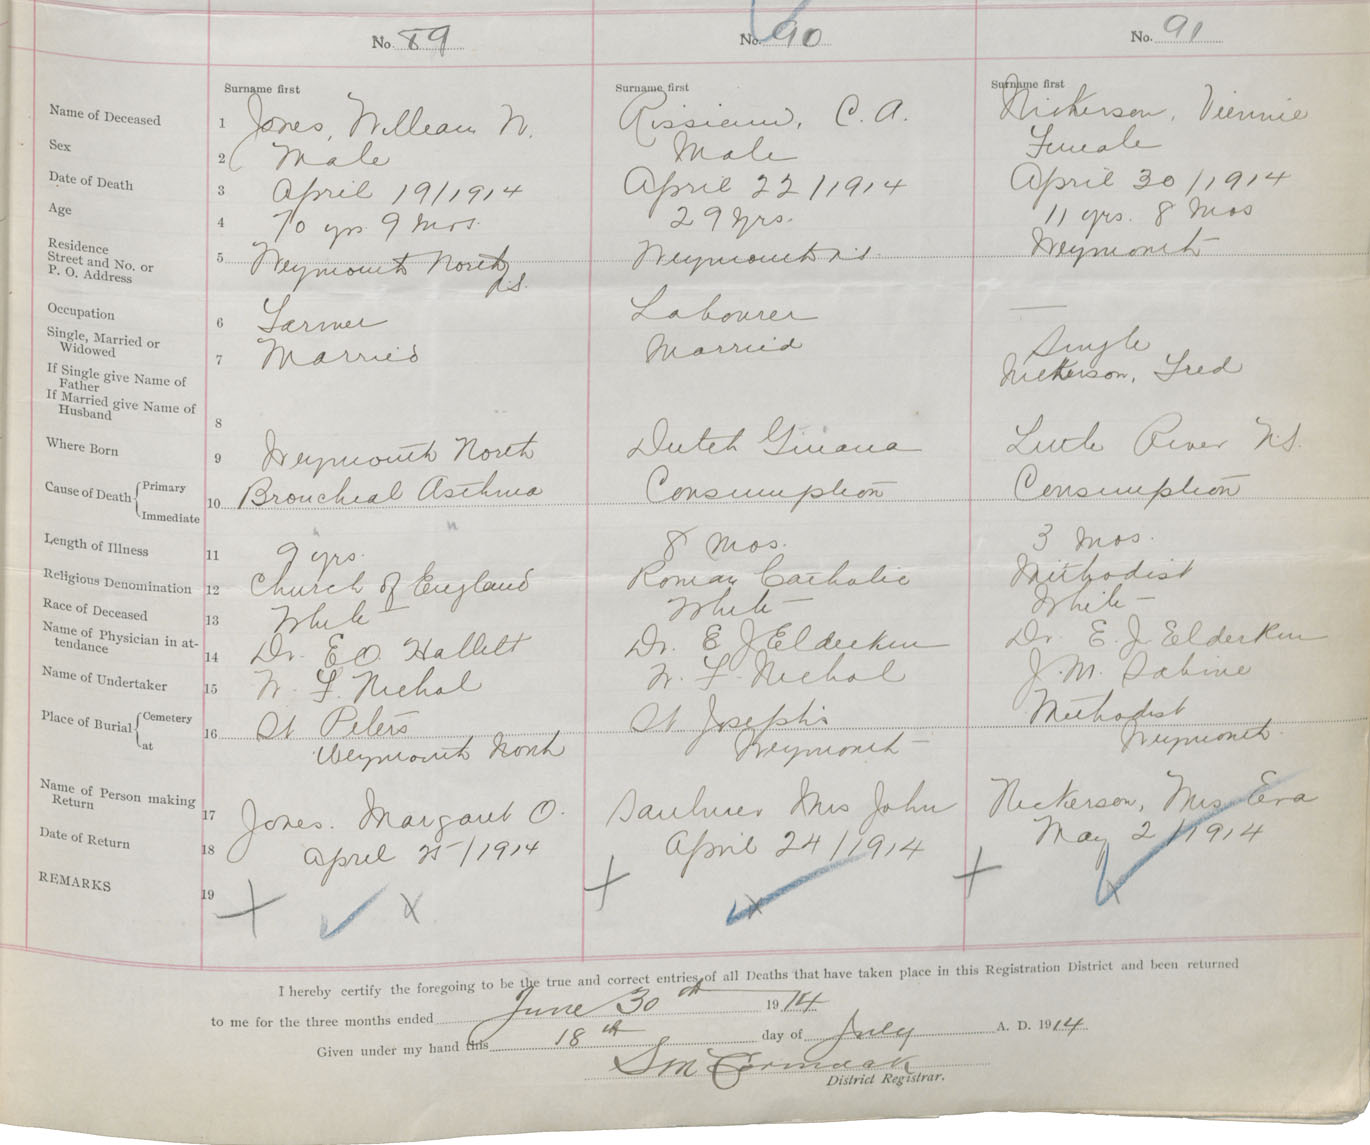 No. 89 No. 90 No. 91
Surname first Surname first Surname first
Name of Deceased 1 Jones, William N. C. A. Nickerson, Viennie
Sex 2 Male Male Female
Date of Death 3 April 19/1914 April 22/1914 April 30/1914
Age 4 70 yrs 9 Mos. 29 yrs. 11 yrs. 8 Mos
Residence
Street and No. or
P. O. Address 5 Weymouth North Weymouth N.S. Weymouth
N.S.
Occupation 6 Farmer Labourer —
Single, Married or
Widowed 7 Married Married Single
If Single give Name of
Father Nickerson, Fred
If Married give Name of
Husband 8
Where Born 9 Weymouth North Dutch Guiana Little River N.S.
Cause of Death { Primary
Immediate 10 Broncheal Asthma Consumption Consumption
Length of Illness 11 9 yrs. 8 mos. 3 mos.
Religious Denomination 12 Church of England Roman Catholic Methodist
Race of Deceased 13 White White White
Name of Physician in at-
tendance 14 Dr. E O. Hallett Dr. E J Elderkin Dr. E. J. Elderkin
Name of Undertaker 15 W. F. Nichol W. F. Nichol J. M. Sabine
Place of Burial { Cemetery
at 16 St Peters St Joseph's Methodist
Weymouth North Weymouth Weymouth
Name of Person making
Return 17 Jones. Margaret O. Saulnier Mrs John Nickerson, Mrs Eva
Date of Return 18 April 25/1914 April 24/1914 May 2/1914
REMARKS 19
I hereby certify the foregoing to be the true and correct entries of all Deaths that have taken place in this Registration District and been returned
to me for the three months ended June 30th 1914
Given under my hand this 18th day of July A. D. 1914
S McCormack
District Registrar.